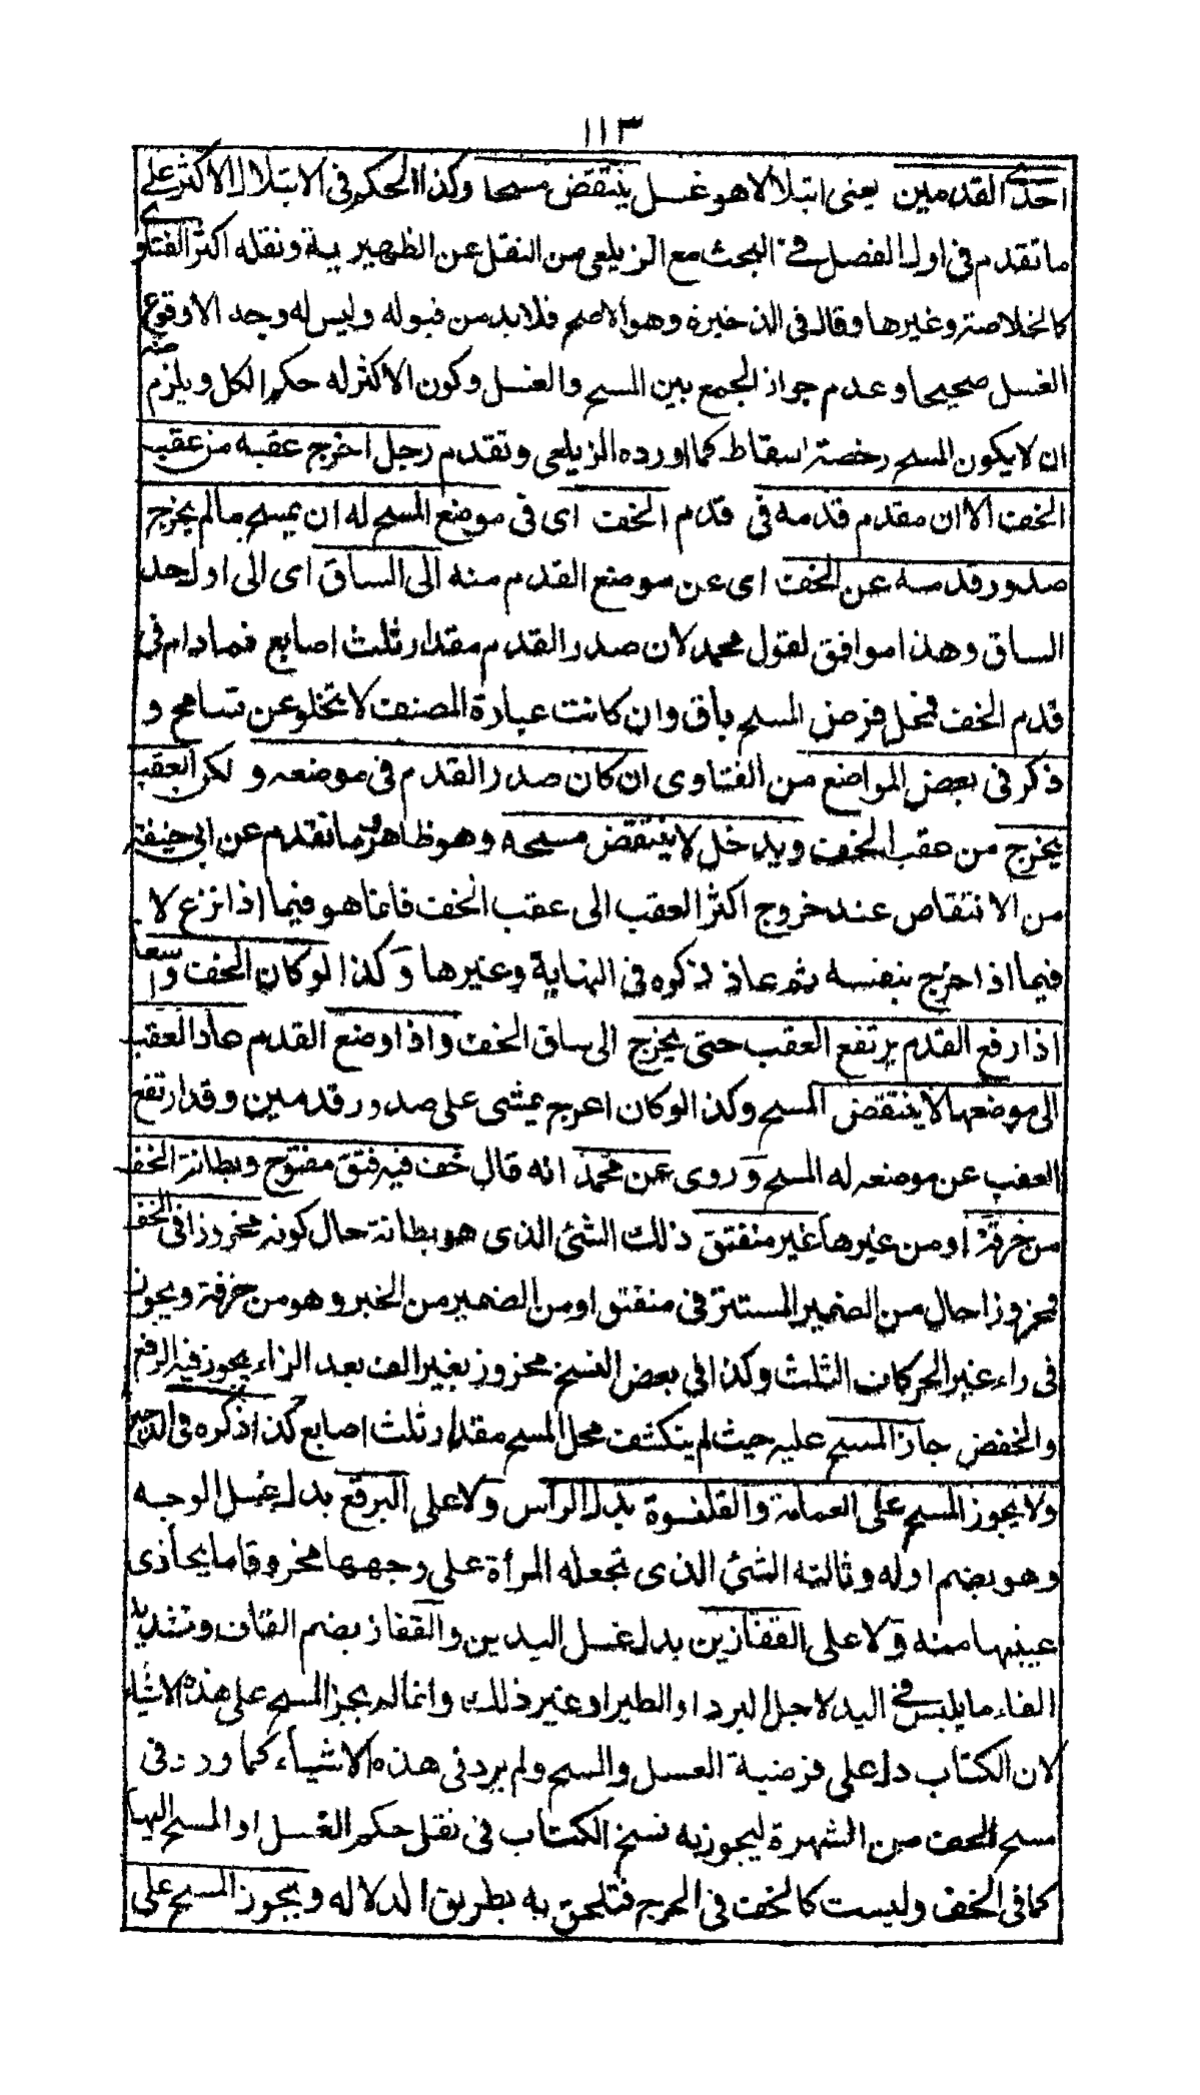 ١١٣
احدى القدمين يعنى ابتلالا هو غسل ينتقض مسحها وكذا الحكم فى الابتلال الاكثر على
ما تقدم فى اول الفصل فى البحث مع الزيلعى من النقل عن الظهيرية ونقله اكثر الفتاوى
كالخلاصة وغيرها وقال فى الذخيرة وهو الاصح فلا بد من قبوله وليس له وجه الا وقوع
الغسل صحيحا وعدم جواز الجمع بين المسح والغسل وكون الاكثر له حكم الكل ويلزم منه
ان لا يكون المسح رخصة اسقاط كما اورده الزيلعى وتقدم رجل اخرج عقبه من عقب
الخف الا ان مقدم قدمه فى قدم الخف اى فى موضع المسح له ان يمسح ما لم يخرج
صدور قدمه عن الخف اى عن موضع القدم منه الى الساق اى الى اول حد
الساق وهذا موافق لقول محمد لان صدر القدم مقدار ثلث اصابع فما دام فى
قدم الخف فمحل فرض المسح باق وان كانت عبارة المصنف لا تخلو عن تسامح و
ذكر فى بعض المواضع من الفتاوى ان كان صدر القدم فى موضعه و لكن العقب
يخرج من عقب الخف ويدخل لا ينتقض مسحه وهو ظاهر وما تقدم عن ابى حنيفة
من الانتقاض عند خروج اكثر العقب الى عقب الخف فانما هو فيما اذا نزع لا
فيما اذا خرج بنفسه ثم عاد ذكره فى النهاية وغيرها وكذا لو كان الخف واسعا
اذا رفع القدم يرتفع العقب حتى يخرج الى ساق الخف واذا وضع القدم عاد العقب
الى موضعها لا ينتقض المسح وكذا لو كان اعرج يمشى على صدور قدمين وقد ارتفع
العقب عن موضعه له المسح وروى عن محمد انه قال خف فيه فتق مفتوح وبطانة الخف
من خرقة او من غيرها غير منفتق ذلك الشئ الذى هو بطانة حال كونه مخروزا فى الخف
فمخروزا حال من الضمير المستتر فى منفتق او من الضمير من الخبر وهو من خرقة ويجوز
فى راء غير الحركات الثلث وكذا فى بعض النسخ مخروز بغير الف بعد الزاء يجوز فيه الرفع
والخفض جاز المسح عليه حيث لم ينكشف محل المسح مقدار ثلث اصابع كذا ذكره فى الذخيرة
ولا يجوز المسح على العمامة والقلنسوة بدل الرأس ولا على البرقع بدل غسل الوجه
وهو بضم اوله وثالثه الشئ الذى تجعله المرأة على وجهها مخروقا ما يحاذى
عينيها منه ولا على القفازين بدل غسل اليدين والقفاز بضم القاف وتشديد
الفاء ما يلبس فى اليد لاجل البرد او الطير او غير ذلك وانما لم يجز المسح على هذه الاشياء
لان الكتاب دل على فرضية الغسل والمسح ولم يرد فى هذه الاشياء كما ورد فى
مسح الخف من الشهرة ليجوز به نسخ الكتاب فى نقل حكم الغسل او المسح اليها
كما فى الخف وليست كالخف فى الحرج فتلحق به بطريق الدلاله ويجوز المسح على